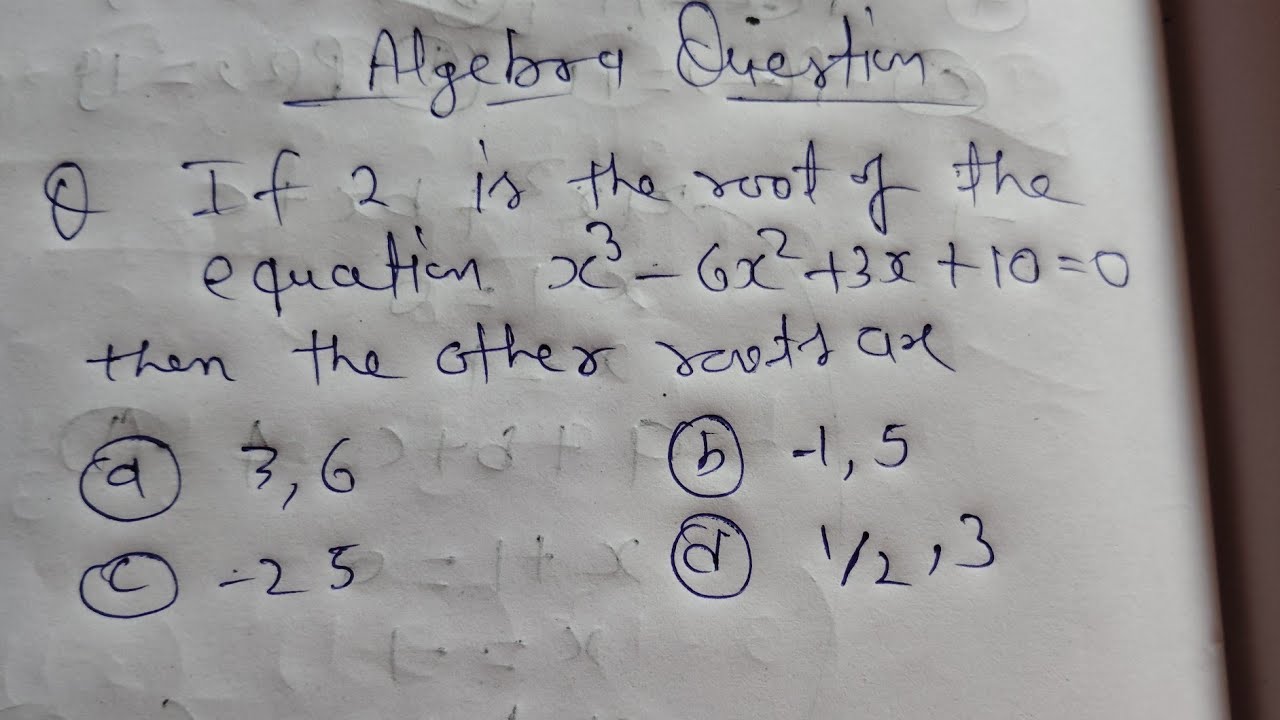 Algebra Question
Q If 2 is the root of the
equation x³ - 6x² + 3x + 10 = 0
then the other roots are
(a) 3, 6 (b) -1, 5
(c) -2 5 (d) 1/2, 3